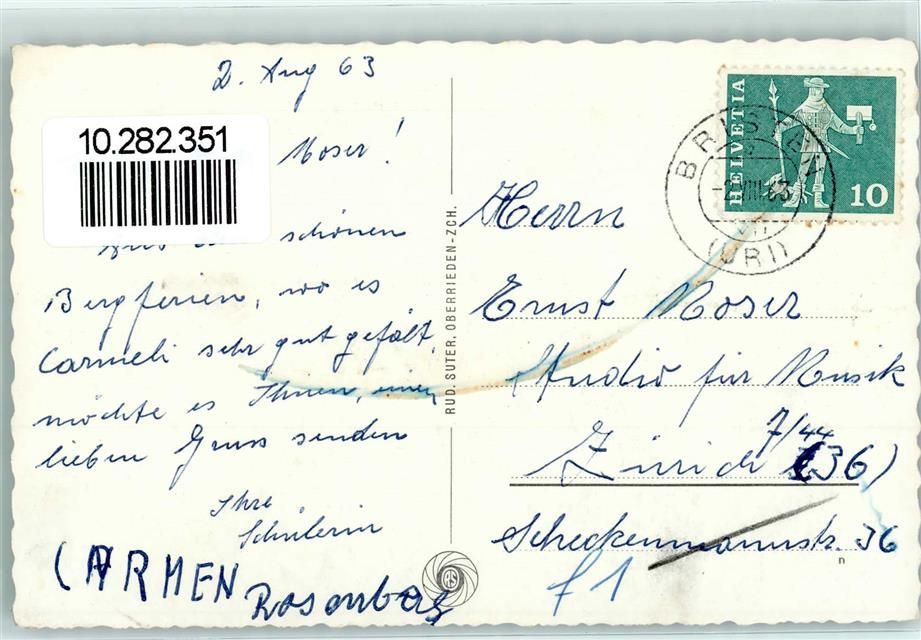 2. Aug 63
10.282.351
Moser!
schönen
Bergferien, wo es
Carmeli sehr gut gefält,
möchte es Ihnen, einen
lieben Gruss senden
Ihre
Schülerin
CARMEN
Rosenberg
RUD. SUTER, OBERRIEDEN-ZCH.
RS
HELVETIA
10
BRISTEN
-2.VIII.63
(URI)
Herrn
Ernst Moser
Studio für Musik
7/44
Zürich (36)
Scheckenmannstr. 36
f 1
n